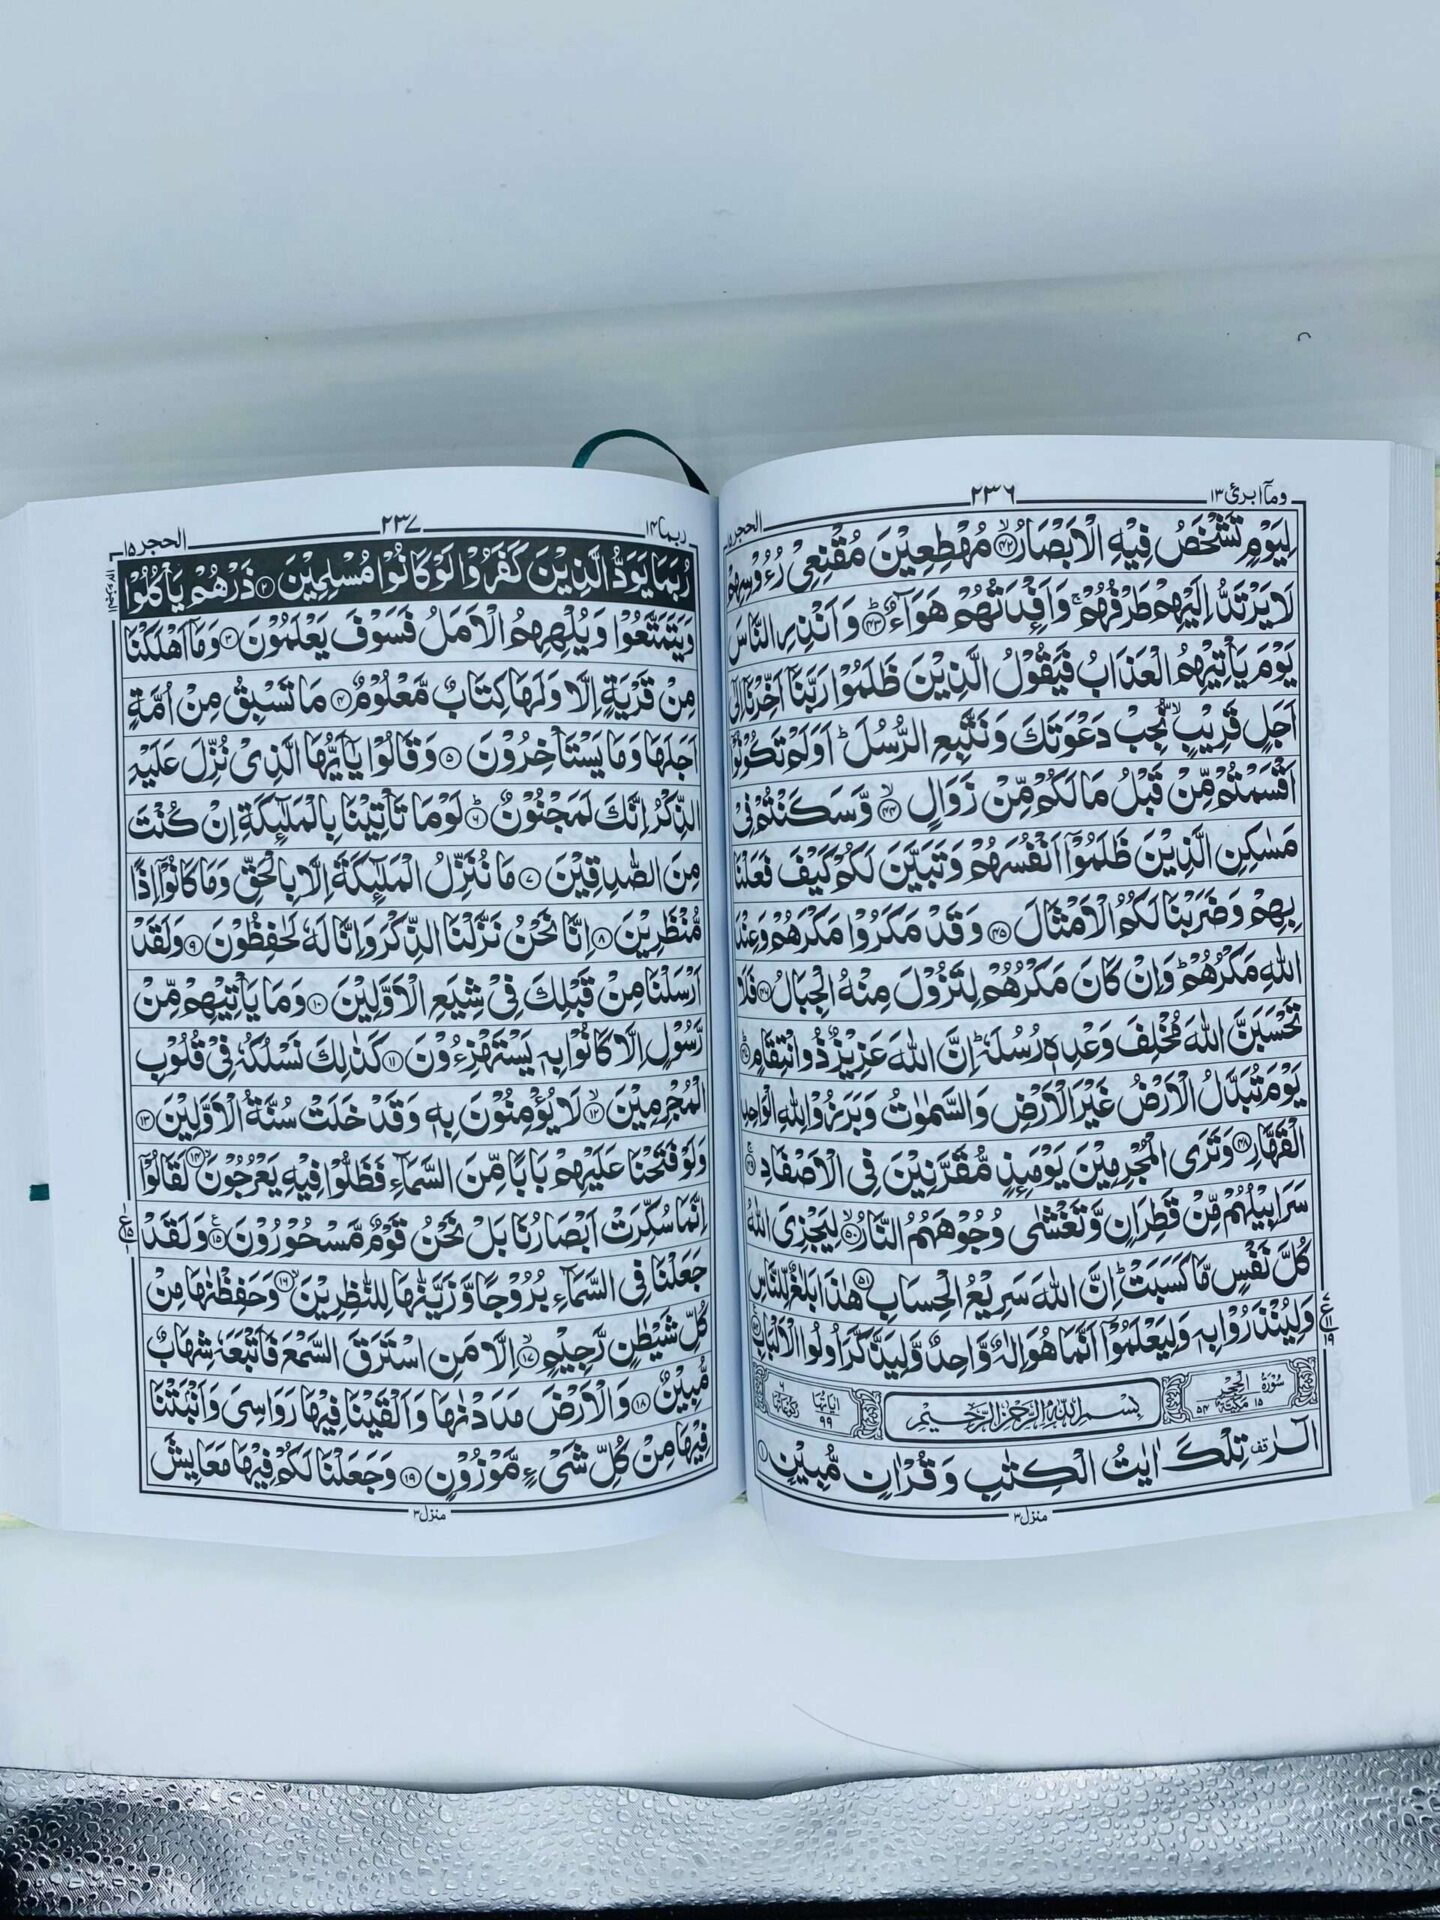 ومآ ابرئ ١٣
٢٣٦
الحجر ١٥
لِيَوْمٍ تَشْخَصُ فِيْهِ الْاَبْصَارُ ۙ﴿۴۲﴾ مُهْطِعِيْنَ مُقْنِعِيْ رُءُوْسِهِمْ
لَا يَرْتَدُّ اِلَيْهِمْ طَرْفُهُمْ ۚ وَاَفْـِٕدَتُهُمْ هَوَآءٌ ؕ﴿۴۳﴾ وَاَنْذِرِ النَّاسَ
يَوْمَ يَاْتِيْهِمُ الْعَذَابُ فَيَقُوْلُ الَّذِيْنَ ظَلَمُوْا رَبَّنَآ اَخِّرْنَآ اِلٰٓى
اَجَلٍ قَرِيْبٍ ۙ نُّجِبْ دَعْوَتَكَ وَنَتَّبِعِ الرُّسُلَ ؕ اَوَلَمْ تَكُوْنُوْٓا
اَقْسَمْتُمْ مِّنْ قَبْلُ مَا لَكُمْ مِّنْ زَوَالٍ ۙ﴿۴۴﴾ وَّسَكَنْتُمْ فِيْ
مَسٰكِنِ الَّذِيْنَ ظَلَمُوْٓا اَنْفُسَهُمْ وَتَبَيَّنَ لَكُمْ كَيْفَ فَعَلْنَا
بِهِمْ وَضَرَبْنَا لَكُمُ الْاَمْثَالَ ﴿۴۵﴾ وَقَدْ مَكَرُوْا مَكْرَهُمْ وَعِنْدَ
اللّٰهِ مَكْرُهُمْ ؕ وَاِنْ كَانَ مَكْرُهُمْ لِتَزُوْلَ مِنْهُ الْجِبَالُ ﴿۴۶﴾ فَلَا
تَحْسَبَنَّ اللّٰهَ مُخْلِفَ وَعْدِهٖ رُسُلَهٗ ؕ اِنَّ اللّٰهَ عَزِيْزٌ ذُو انْتِقَامٍ ؕ﴿۴۷﴾
يَوْمَ تُبَدَّلُ الْاَرْضُ غَيْرَ الْاَرْضِ وَالسَّمٰوٰتُ وَبَرَزُوْا لِلّٰهِ الْوَاحِدِ
الْقَهَّارِ ﴿۴۸﴾ وَتَرَى الْمُجْرِمِيْنَ يَوْمَىِٕذٍ مُّقَرَّنِيْنَ فِي الْاَصْفَادِ ۚ﴿۴۹﴾
سَرَابِيْلُهُمْ مِّنْ قَطِرَانٍ وَّتَغْشٰى وُجُوْهَهُمُ النَّارُ ۙ﴿۵۰﴾ لِيَجْزِيَ اللّٰهُ
كُلَّ نَفْسٍ مَّا كَسَبَتْ ؕ اِنَّ اللّٰهَ سَرِيْعُ الْحِسَابِ ﴿۵۱﴾ هٰذَا بَلٰغٌ لِّلنَّاسِ
وَلِيُنْذَرُوْا بِهٖ وَلِيَعْلَمُوْٓا اَنَّمَا هُوَ اِلٰهٌ وَّاحِدٌ وَّلِيَذَّكَّرَ اُولُوا الْاَلْبَابِ ﴿۵۲﴾
ع ٧ ١١ ١٩
سُوْرَةُ الْحِجْرِ ١٥ مَكِّيَّةٌ ٥٤
بِسْمِ اللّٰهِ الرَّحْمٰنِ الرَّحِيْمِ
اٰيَاتُهَا ٩٩ رُكُوْعَاتُهَا ٦
الٓرٰ ۫ قف تِلْكَ اٰيٰتُ الْكِتٰبِ وَقُرْاٰنٍ مُّبِيْنٍ ﴿۱﴾
منزل ٣
ربما ١٤
٢٣٧
الحجر ١٥
رُبَمَا يَوَدُّ الَّذِيْنَ كَفَرُوْا لَوْ كَانُوْا مُسْلِمِيْنَ ﴿۲﴾ ذَرْهُمْ يَاْكُلُوْا
وَيَتَمَتَّعُوْا وَيُلْهِهِمُ الْاَمَلُ فَسَوْفَ يَعْلَمُوْنَ ﴿۳﴾ وَمَآ اَهْلَكْنَا
مِنْ قَرْيَةٍ اِلَّا وَلَهَا كِتَابٌ مَّعْلُوْمٌ ﴿۴﴾ مَا تَسْبِقُ مِنْ اُمَّةٍ
اَجَلَهَا وَمَا يَسْتَاْخِرُوْنَ ﴿۵﴾ وَقَالُوْا يٰٓاَيُّهَا الَّذِيْ نُزِّلَ عَلَيْهِ
الذِّكْرُ اِنَّكَ لَمَجْنُوْنٌ ؕ﴿۶﴾ لَوْ مَا تَاْتِيْنَا بِالْمَلٰٓىِٕكَةِ اِنْ كُنْتَ
مِنَ الصّٰدِقِيْنَ ﴿۷﴾ مَا نُنَزِّلُ الْمَلٰٓىِٕكَةَ اِلَّا بِالْحَقِّ وَمَا كَانُوْٓا اِذًا
مُّنْظَرِيْنَ ﴿۸﴾ اِنَّا نَحْنُ نَزَّلْنَا الذِّكْرَ وَاِنَّا لَهٗ لَحٰفِظُوْنَ ﴿۹﴾ وَلَقَدْ
اَرْسَلْنَا مِنْ قَبْلِكَ فِيْ شِيَعِ الْاَوَّلِيْنَ ﴿۱۰﴾ وَمَا يَاْتِيْهِمْ مِّنْ
رَّسُوْلٍ اِلَّا كَانُوْا بِهٖ يَسْتَهْزِءُوْنَ ﴿۱۱﴾ كَذٰلِكَ نَسْلُكُهٗ فِيْ قُلُوْبِ
الْمُجْرِمِيْنَ ۙ﴿۱۲﴾ لَا يُؤْمِنُوْنَ بِهٖ وَقَدْ خَلَتْ سُنَّةُ الْاَوَّلِيْنَ ﴿۱۳﴾
وَلَوْ فَتَحْنَا عَلَيْهِمْ بَابًا مِّنَ السَّمَآءِ فَظَلُّوْا فِيْهِ يَعْرُجُوْنَ ۙ﴿۱۴﴾ لَقَالُوْٓا
اِنَّمَا سُكِّرَتْ اَبْصَارُنَا بَلْ نَحْنُ قَوْمٌ مَّسْحُوْرُوْنَ ﴿۱۵﴾ وَلَقَدْ
جَعَلْنَا فِي السَّمَآءِ بُرُوْجًا وَّزَيَّنّٰهَا لِلنّٰظِرِيْنَ ۙ﴿۱۶﴾ وَحَفِظْنٰهَا مِنْ
كُلِّ شَيْطٰنٍ رَّجِيْمٍ ۙ﴿۱۷﴾ اِلَّا مَنِ اسْتَرَقَ السَّمْعَ فَاَتْبَعَهٗ شِهَابٌ
مُّبِيْنٌ ﴿۱۸﴾ وَالْاَرْضَ مَدَدْنٰهَا وَاَلْقَيْنَا فِيْهَا رَوَاسِيَ وَاَنْۢبَتْنَا
فِيْهَا مِنْ كُلِّ شَيْءٍ مَّوْزُوْنٍ ﴿۱۹﴾ وَجَعَلْنَا لَكُمْ فِيْهَا مَعَايِشَ
منزل ٣